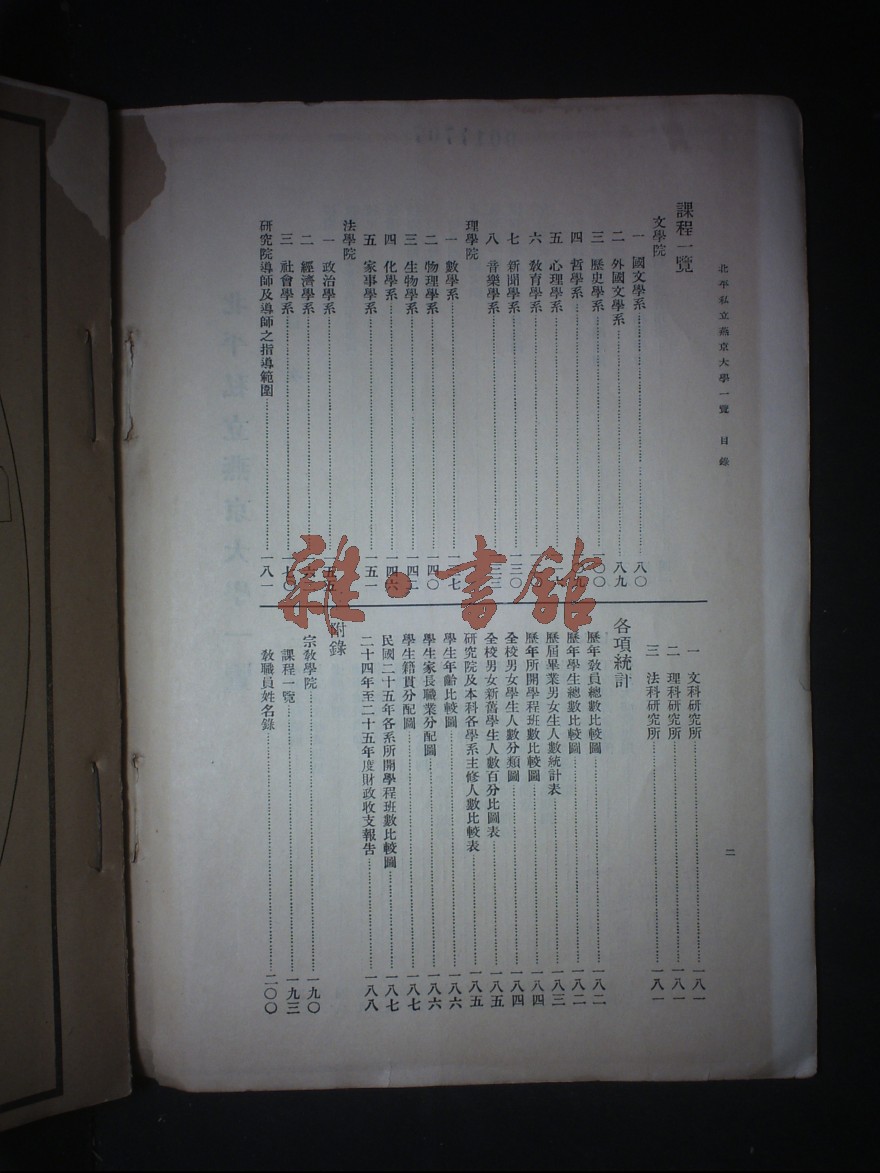 北平私立燕京大學一覽 目錄
二
課程一覽
文學院
一 國文學系……八〇
二 外國文學系……八九
三 歷史學系……一〇〇
四 哲學系……
五 心理學系……
六 教育學系……
七 新聞學系……一三〇
八 音樂學系……
理學院
一 數學系……
二 物理學系……一四〇
三 生物學系……一四二
四 化學系……一四六
五 家事學系……一五一
法學院
一 政治學系……一五五
二 經濟學系……
三 社會學系……一七〇
研究院導師及導師之指導範圍……一八一
一 文科研究所……一八一
二 理科研究所……一八一
三 法科研究所……一八一
各項統計
歷年教員總數比較圖……一八二
歷年學生總數比較圖……一八二
歷屆畢業男女生人數統計表……一八三
歷年所開學程班數比較圖……一八四
全校男女學生人數分類圖……一八四
全校男女新舊學生人數百分比圖表……一八五
研究院及本科各學系主修人數比較表……一八五
學生年齡比較圖……一八六
學生家長職業分配圖……一八六
學生籍貫分配圖……一八七
民國二十五年各系所開學程班數比較圖……一八七
二十四年至二十五年度財政收支報告……一八八
附錄
宗教學院……一九〇
課程一覽……一九三
教職員姓名錄……二〇〇
雜·書館